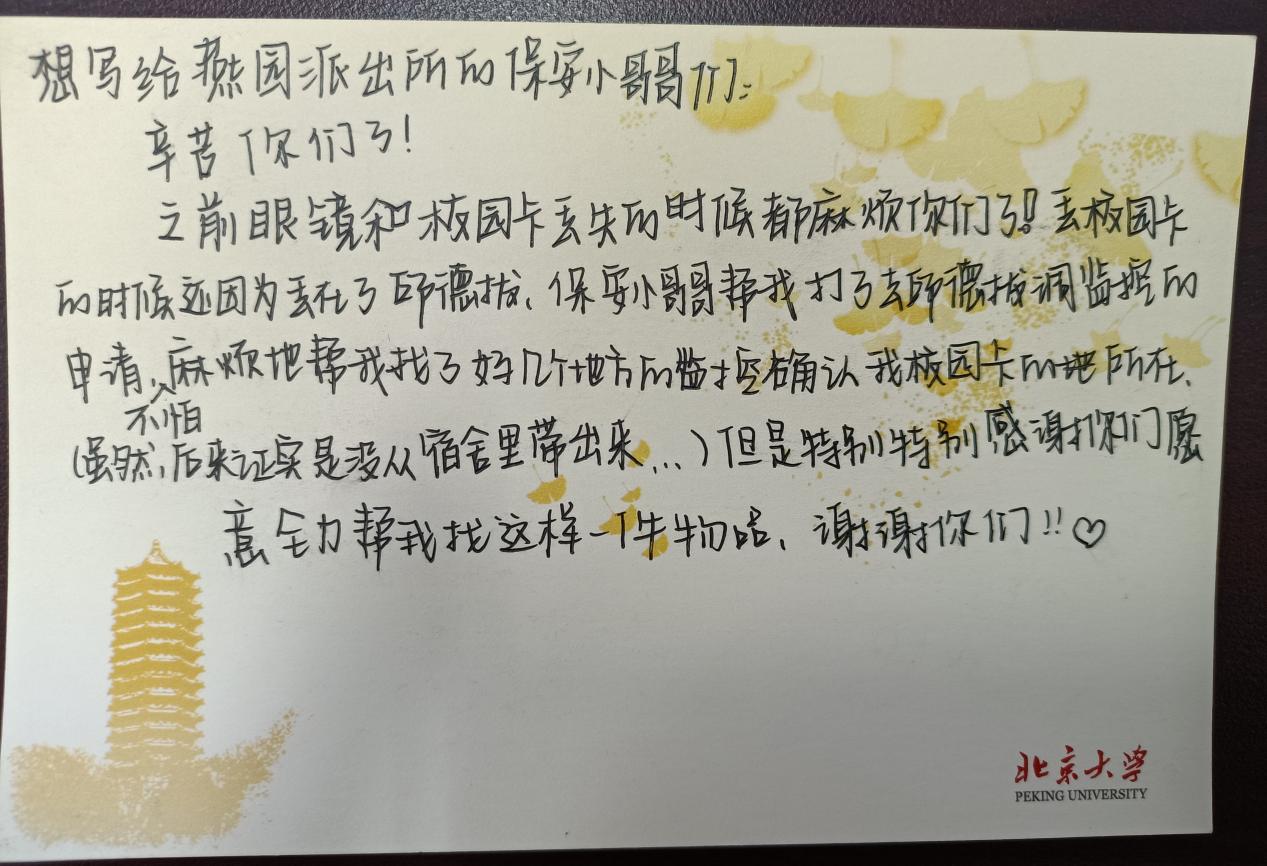 想写给燕园派出所的保安小哥哥们：
辛苦你们了！
之前眼镜和校园卡丢失的时候都麻烦你们了！丢校园卡
的时候还因为丢在了邱德拔，保安小哥哥帮我打了去邱德拔调监控的
申请，不怕麻烦地帮我找了好几个地方的监控确认我校园卡的地所在，
（虽然后来证实是没从宿舍里带出来…）但是特别特别感谢你们愿
意全力帮我找这样一件物品，谢谢你们！！♡
北京大学
PEKING UNIVERSITY